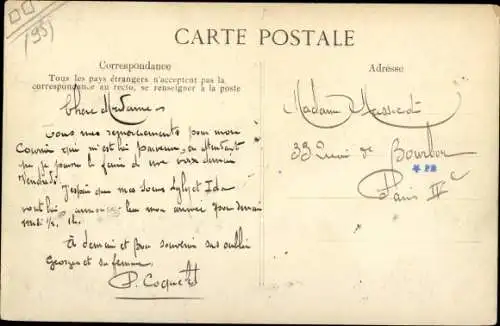 1951
CARTE POSTALE
Correspondance
Tous les pays étrangers n'acceptent pas la
correspondance au recto, se renseigner à la poste
Adresse
Chère Madame,
Tous mes remerciements pour mon
qui m'est parvenu, en attendant
que je puisse le faire de vive voix demain
Vendredi.
J'espère que mes soeurs et Ida
vont bien mon arrivée pour demain
midi ½.
à demain et bon souvenir sans oublier
Georges et sa femme
P. Coquet
Madame
33 Quai de Bourbon
Paris IVe